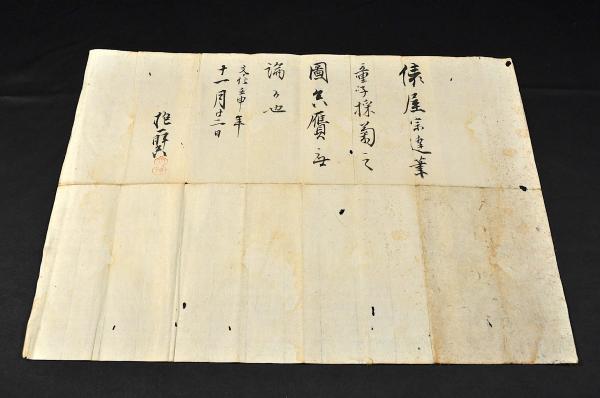 俵屋宗達筆
童子採菊之
圖不贋無
論者也
文化壬申年
十一月廿二日
抱一